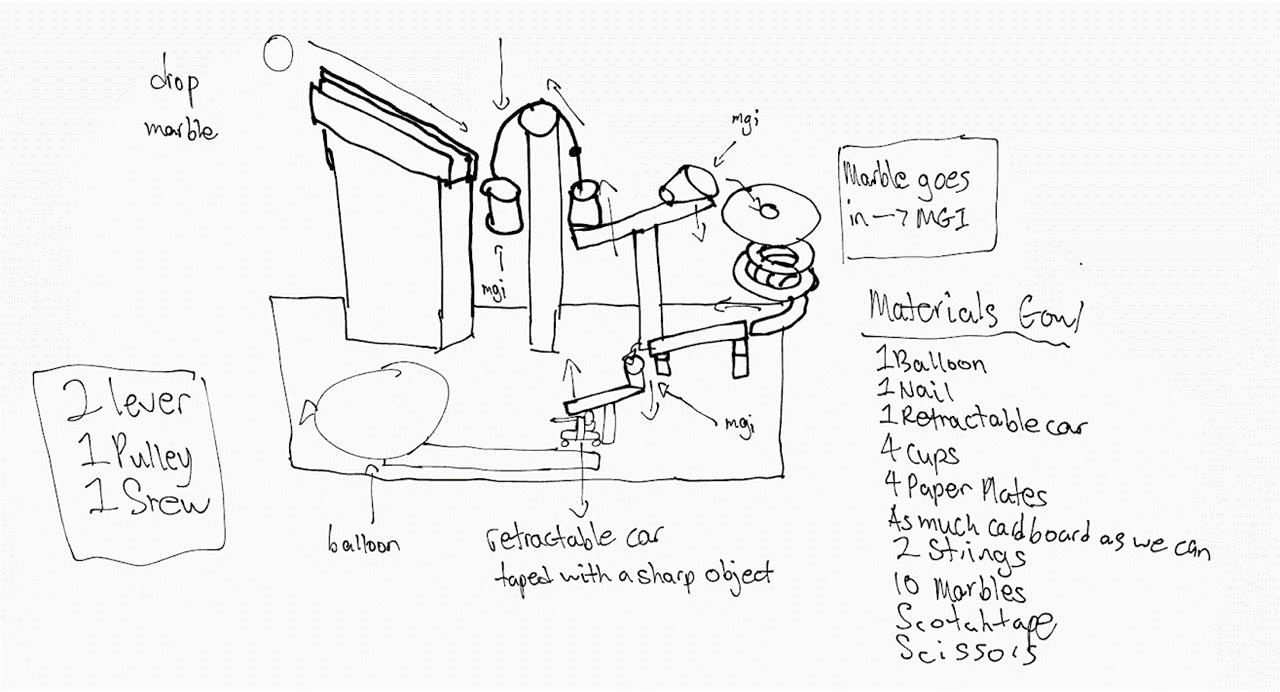 drop
marble
mgi
mgi
Marble goes
in → MGI
2 lever
1 Pulley
1 Srew
mgi
balloon
retractable car
taped with a sharp object
Materials Goal
1 Balloon
1 Nail
1 Retractable car
4 Cups
4 Paper Plates
As much cadboard as we can
2 Strings
10 Marbles
Scotahtape
Scissors